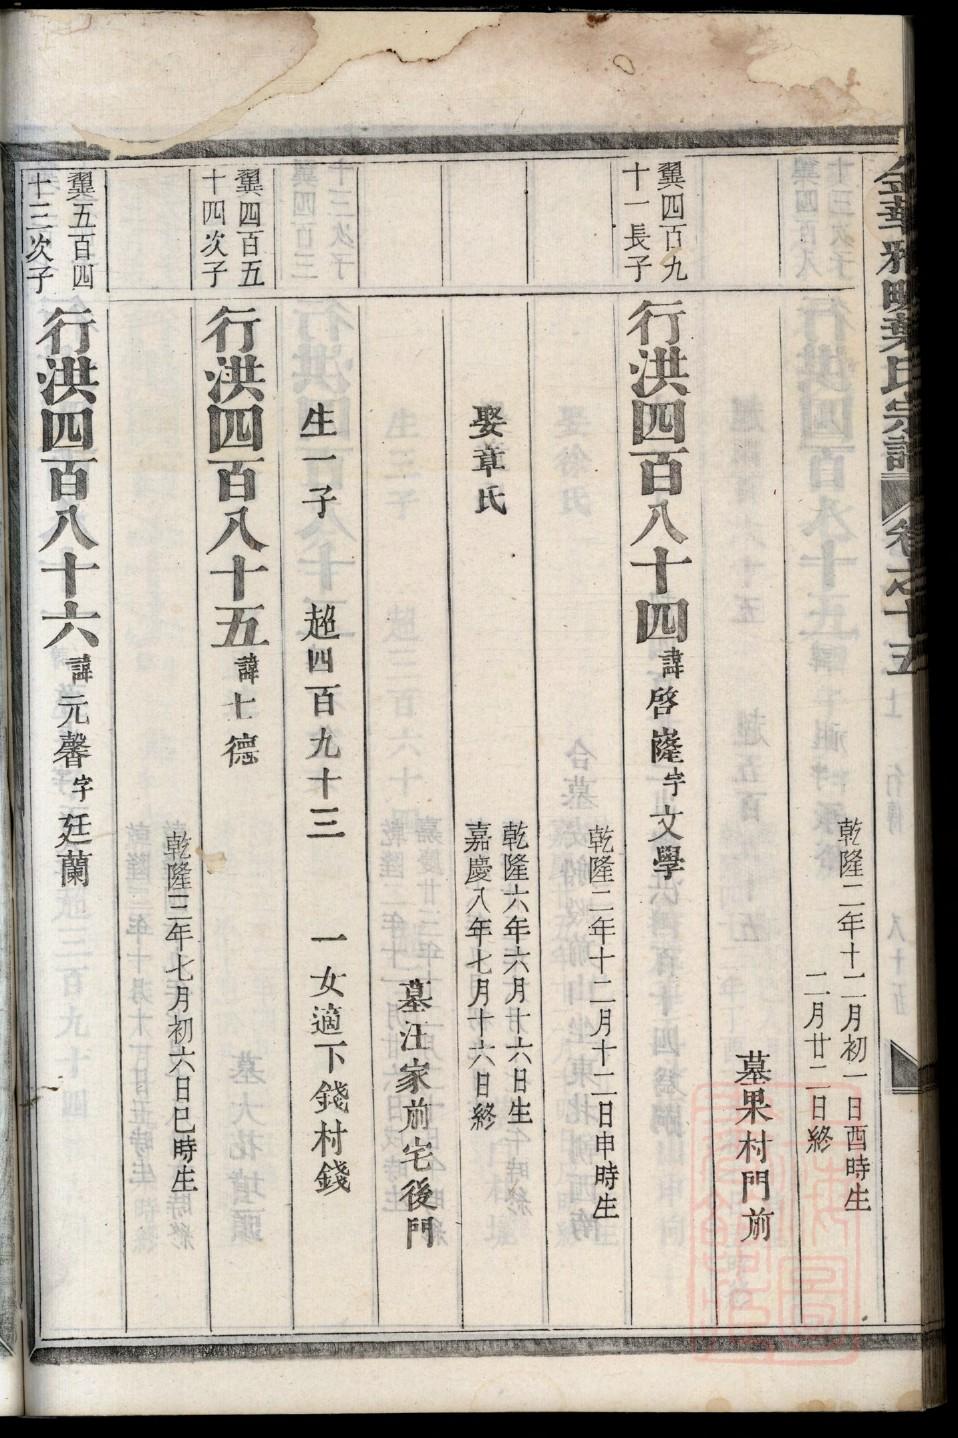 金華雅畈葉氏宗譜 卷之十五
乾隆二年十一月初一日酉時生
二月廿二日終
墓果村門前
翼四百九
十一長子
行洪四百八十四 諱啓嶐 字文學
乾隆二年十二月十二日申時生
娶章氏
乾隆六年六月廿六日生
嘉慶八年七月十六日終
墓汪家前宅後門
生一子 超四百九十三 一女適下錢村錢
翼四百五
十四次子
行洪四百八十五 諱士德
乾隆三年七月初六日巳時生
翼五百四
十三次子
行洪四百八十六 諱元馨 字廷蘭